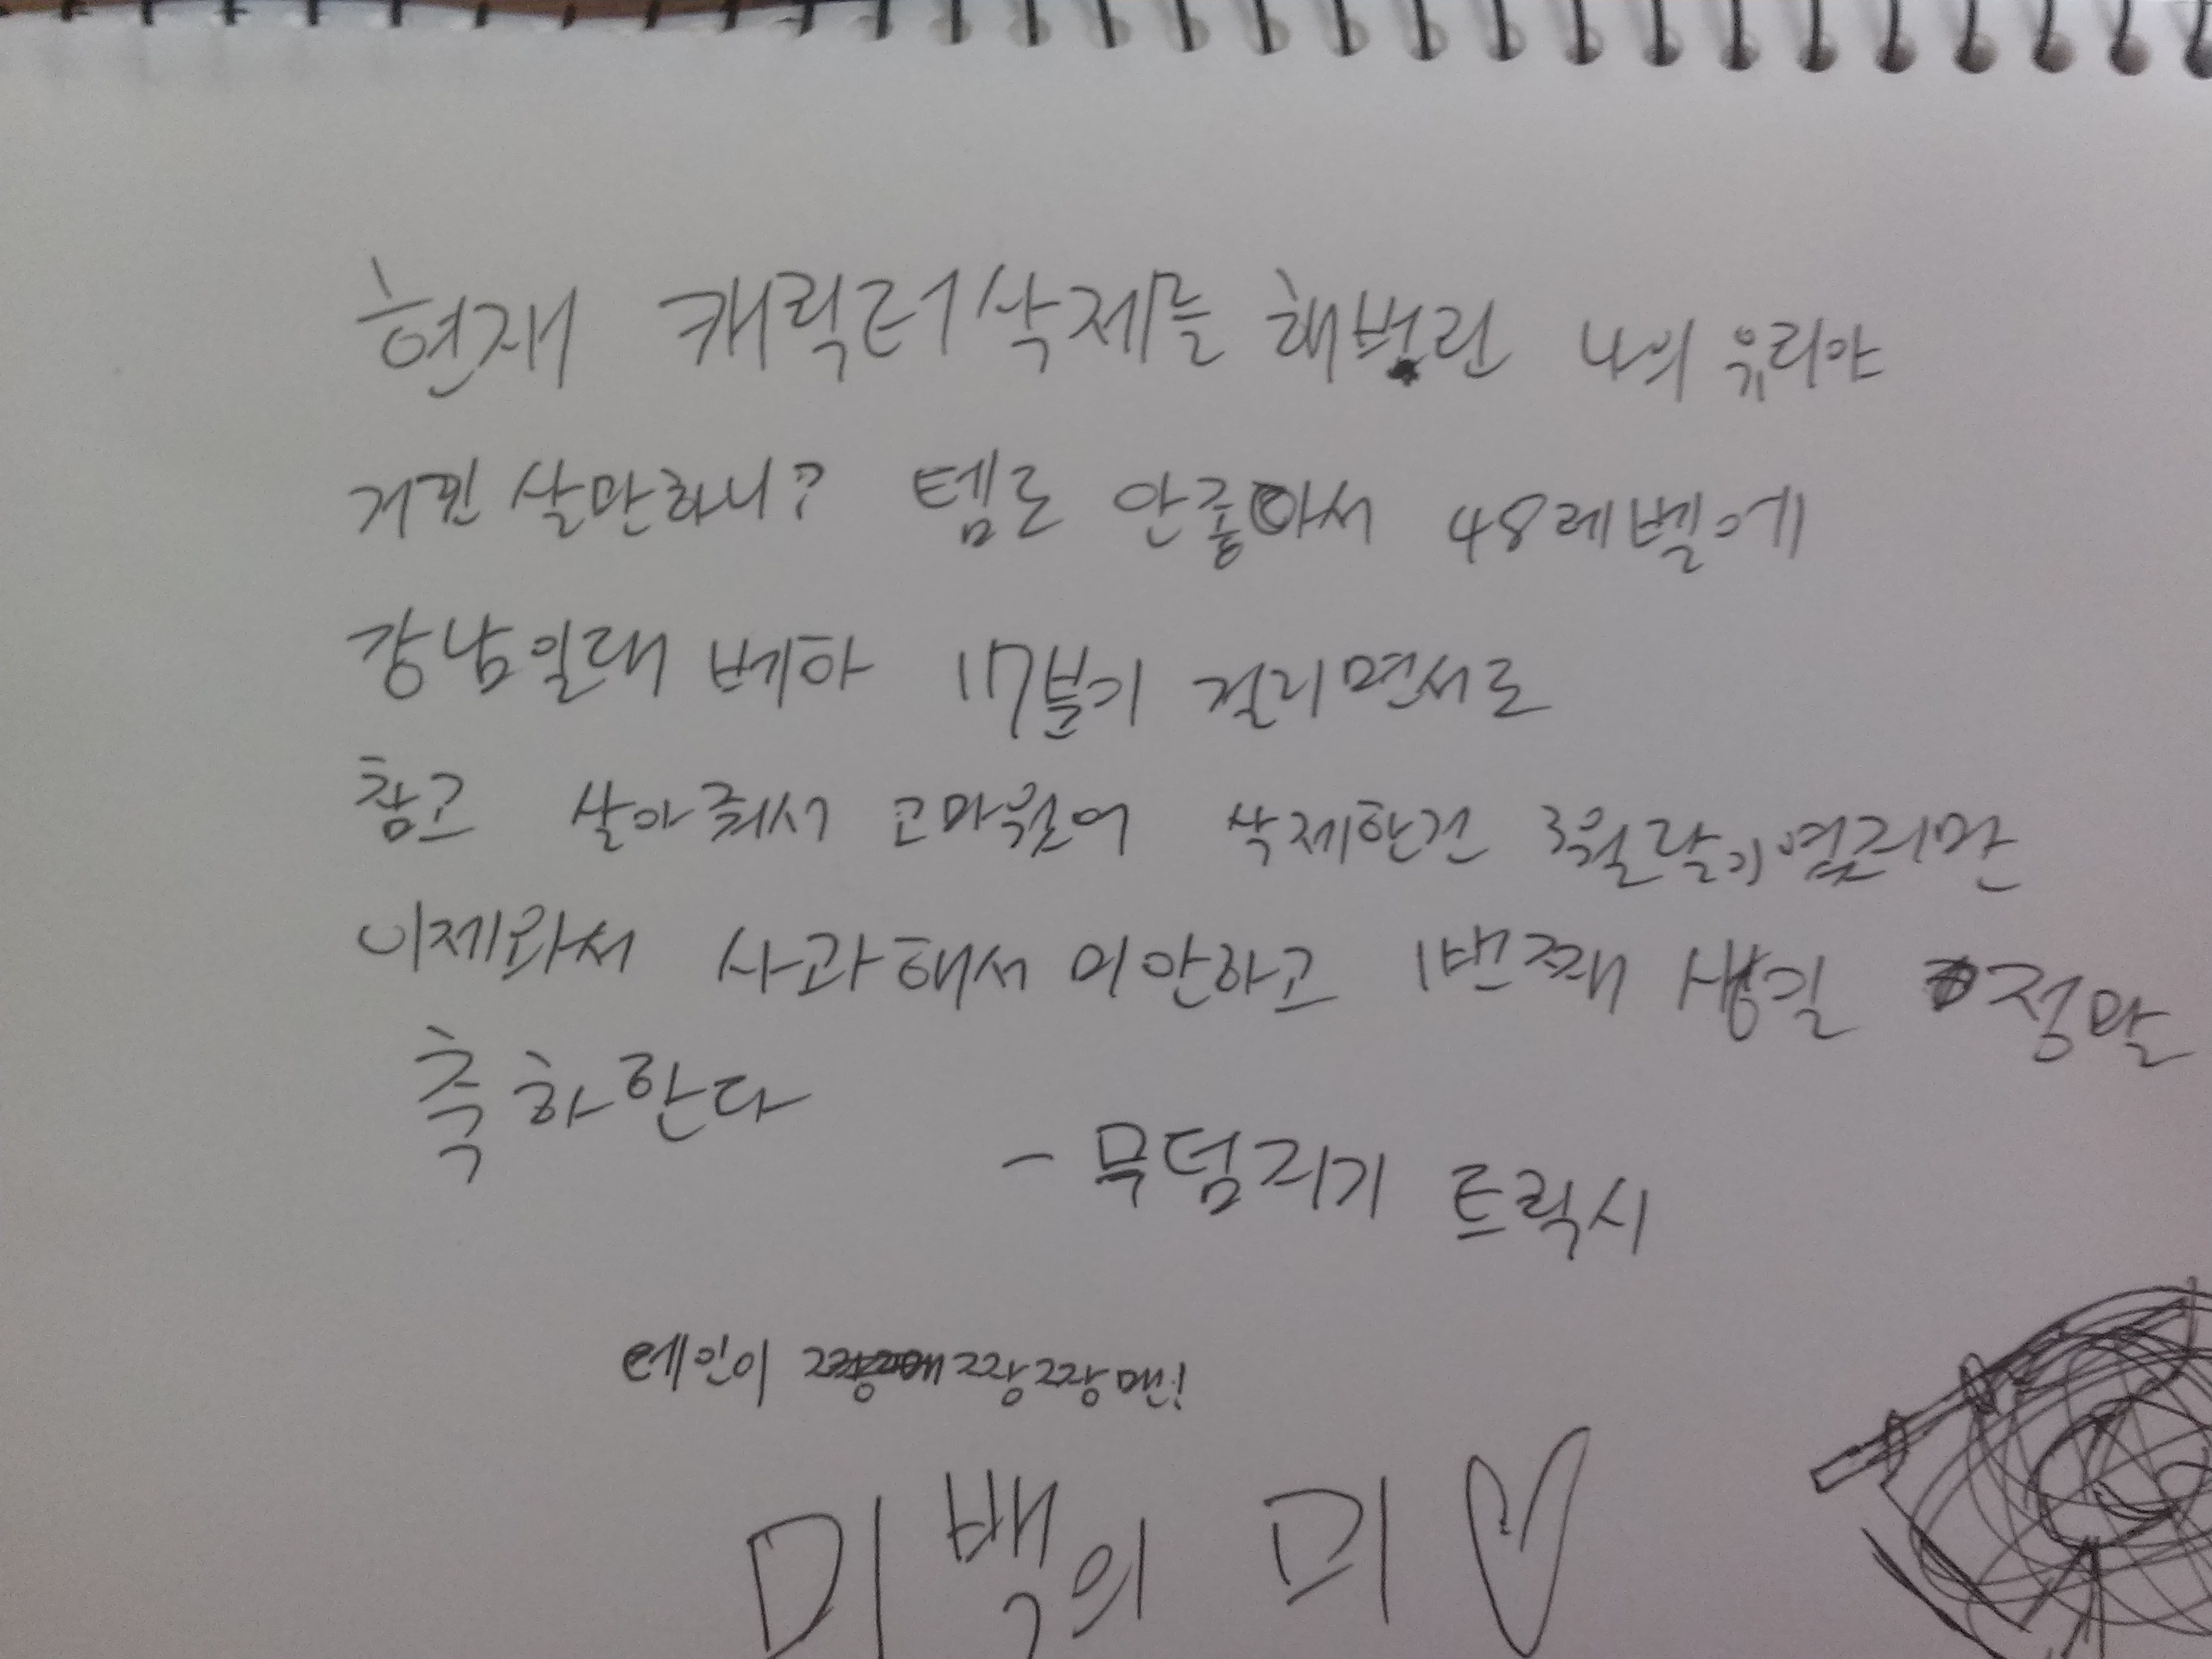 현재 캐릭터삭제를 해버린 나의 유리야
거긴 살만하니? 템도 안좋아서 48레벨에
강남일대 베하 17분이 걸리면서도
참고 살아줘서 고마웠어 삭제한건 3월달이였지만
이제와서 사과해서 미안하고 1번째 생일 정말
축하한다
- 무덤지기 트릭시
레인이 짱짱맨!
미백의 미♡